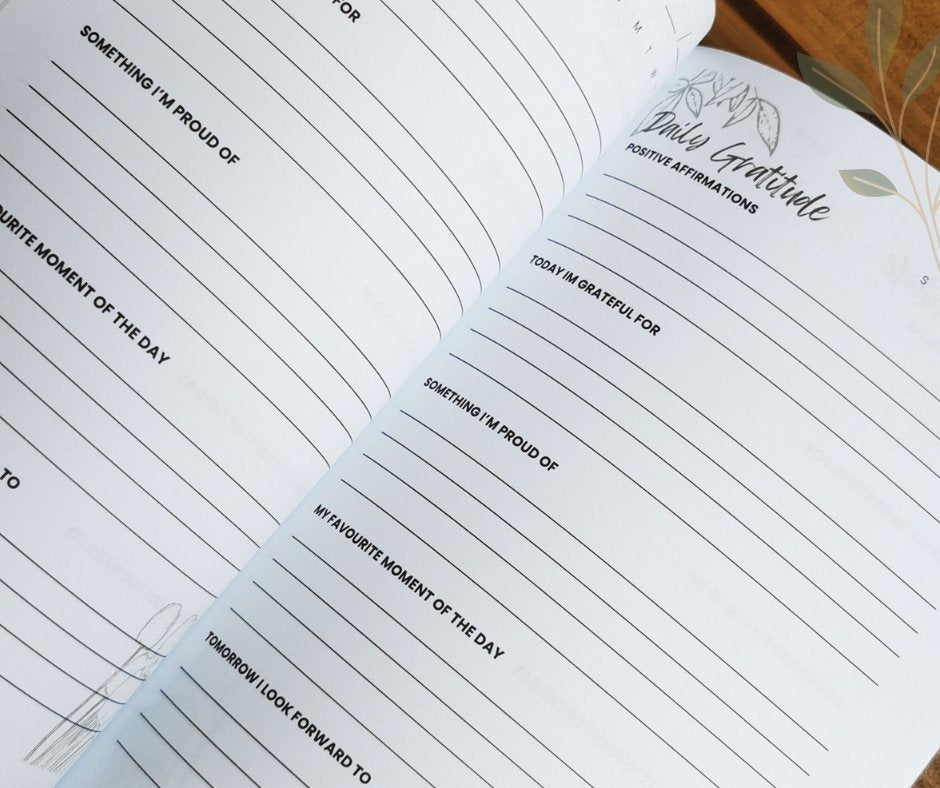 FOR
SOMETHING I'M PROUD OF
MOMENT OF THE DAY
TO
M T W
Daily Gratitude
S
POSITIVE AFFIRMATIONS
TODAY IM GRATEFUL FOR
SOMETHING I'M PROUD OF
MY FAVOURITE MOMENT OF THE DAY
TOMORROW I LOOK FORWARD TO